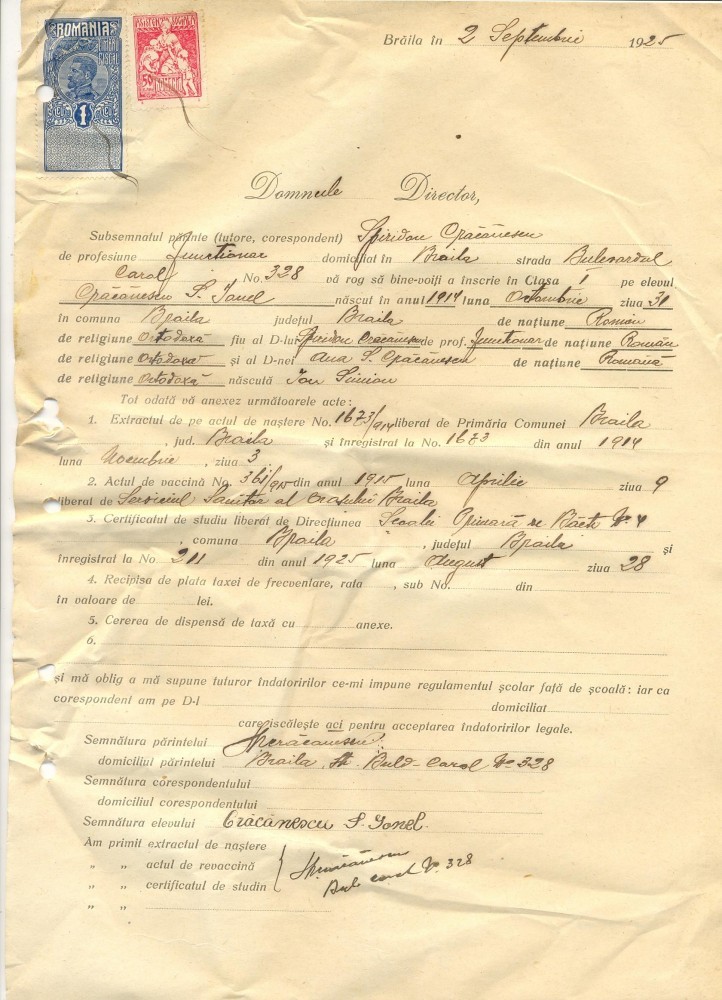 ROMANIA
TIMBRU FISCAL
1
ASISTENTA SOCIALA
50
ROMANIA
Brăila în 2 Septembrie 1925
Domnule Director,
Subsemnatul părinte (tutore, corespondent) Spiridon Crăcănescu
de profesiune functionar domiciliat în Braila strada Bulevardul
Carol No. 328 vă rog să bine-voiți a înscrie în Clasa I pe elevul
Crăcănescu S. Ionel născut în anul 1914 luna Octombrie ziua 31
în comuna Braila județul Braila de națiune Român
de religiune Ortodoxă fiu al D-lui Spiridon Crăcănescu de prof. functionar de națiune Român
de religiune Ortodoxă și al D-nei Ana S. Crăcănescu de națiune Română
de religiune Ortodoxă născută Ion Simion
Tot odată vă anexez următoarele acte :
1. Extractul de pe actul de naștere No. 1673/914 liberat de Primăria Comunei Braila
, jud. Braila și înregistrat la No. 1673 din anul 1914
luna Noembrie , ziua 3
2. Actul de vaccină No. 361/915 din anul 1915 luna Aprilie ziua 9
liberat de Serviciul Sanitar al Orașului Braila
3. Certificatul de studiu liberat de Direcțiunea Scoalei Primară de Băeti No. 4
, comuna Braila , județul Braila și
înregistrat la No 211 din anul 1925 luna August ziua 28
4. Recipisa de plata taxei de frecventare, rata , sub No. din
în valoare de lei.
5. Cererea de dispensă de taxă cu anexe.
6.
și mă oblig a mă supune tuturor îndatoririlor ce-mi impune regulamentul școlar față de școală : iar ca
corespondent am pe D-l domiciliat
care iscălește aci pentru acceptarea îndatoririlor legale.
Semnătura părintelui SCrăcănescu
domiciliul părintelui Braila Str. Buld-Carol No 328
Semnătura corespondentului
domiciliul corespondentului
Semnătura elevului Crăcănescu S. Ionel.
Am primit extractul de naștere
„ „ actul de revaccină SCrăcănescu
„ „ certificatul de studin Bul. carol No. 328
„ „